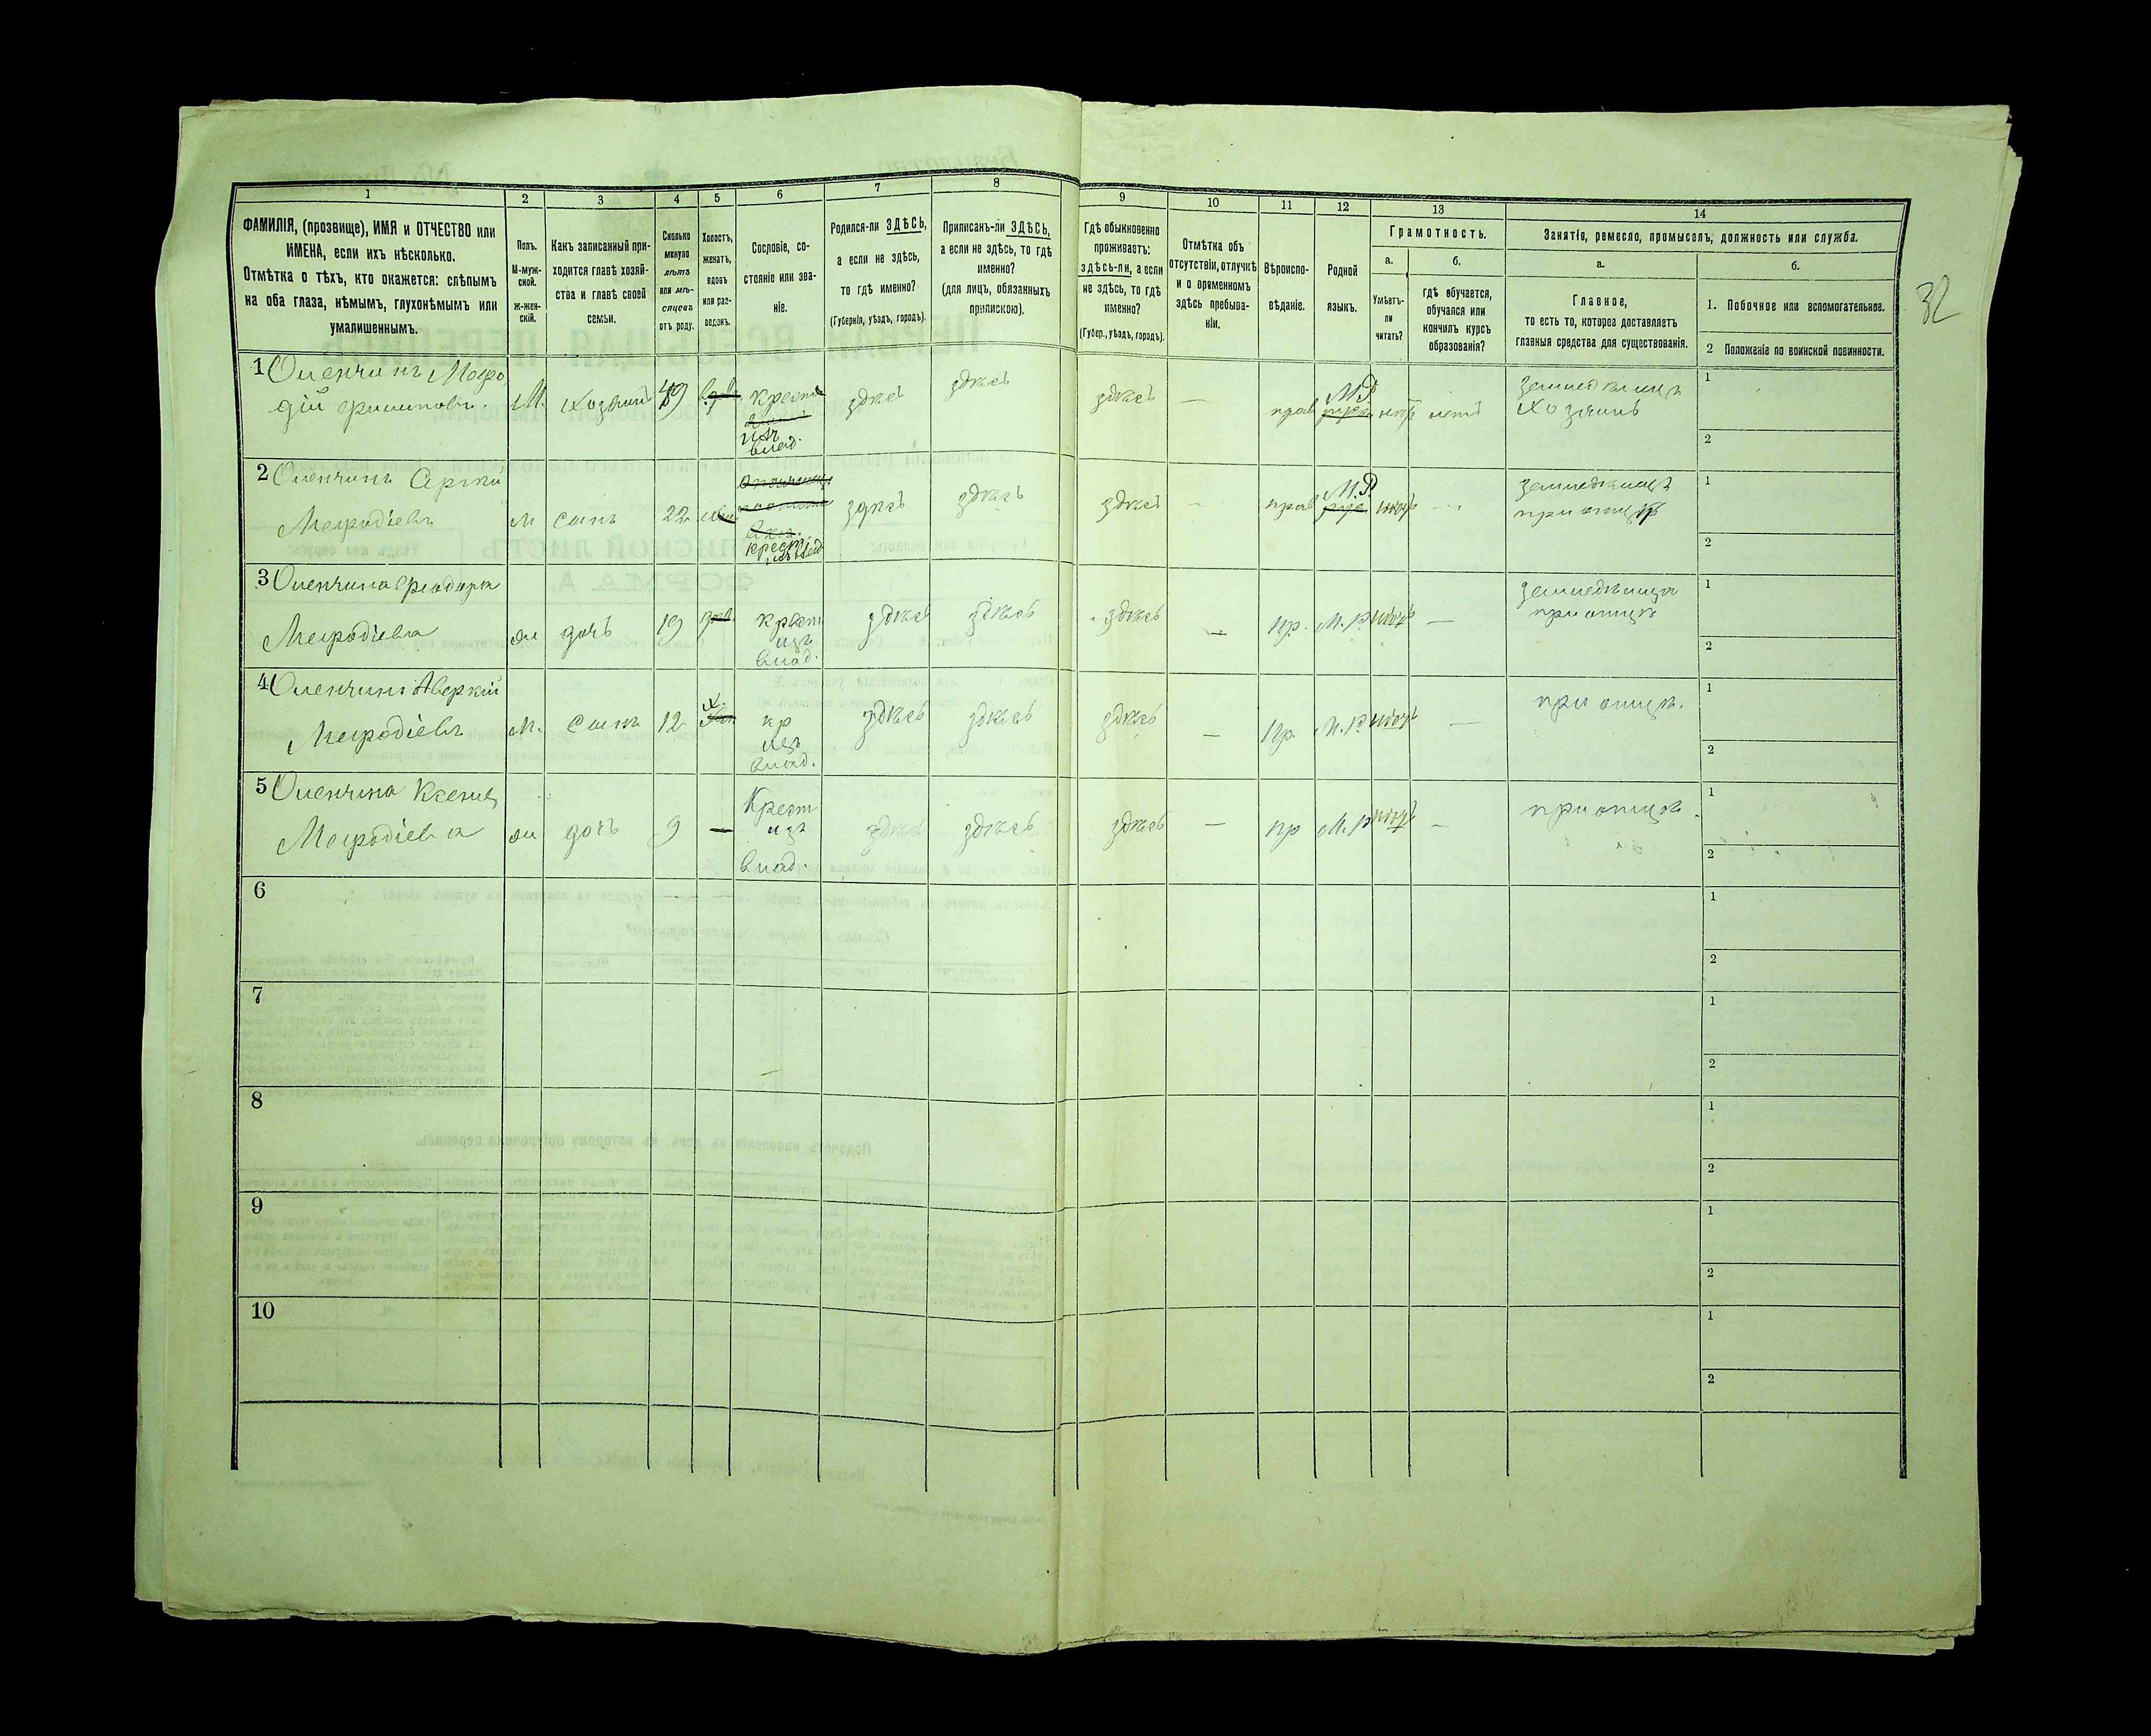 1 2 3 4 5 6 7 8 9 10 11 12 13 14
ФАМИЛІЯ, (прозвище), ИМЯ и ОТЧЕСТВО или
ИМЕНА, если ихъ нѣсколько.
Отмѣтка о тѣхъ, кто окажется: слѣпымъ
на оба глаза, нѣмымъ, глухонѣмымъ или
умалишеннымъ.
Полъ.
М-муж-
ской.
Ж-жен-
скій.
Какъ записанный при-
ходится главѣ хозяй-
ства и главѣ своей
семьи.
Сколько
минуло
лѣтъ
или мѣ-
сяцевъ
отъ роду.
Холостъ,
женатъ,
вдовъ
или раз-
веденъ.
Сословіе, со-
стояніе или зва-
ніе.
Родился-ли ЗДѢСЬ,
а если не здѣсь,
то гдѣ именно?
(Губернія, уѣздъ, городъ).
Приписанъ-ли ЗДѢСЬ,
а если не здѣсь, то гдѣ
именно?
(для лицъ, обязанныхъ
припискою).
Гдѣ обыкновенно
проживаетъ:
здѣсь-ли, а если
не здѣсь, то гдѣ
именно?
(Губер., уѣздъ, городъ).
Отмѣтка объ
отсутствіи, отлучкѣ
и о временномъ
здѣсь пребыва-
ніи.
Вѣроиспо-
вѣданіе.
Родной
языкъ.
Грамотность.
а.
Умѣетъ-
ли
читать?
б.
гдѣ обучается,
обучался или
кончилъ курсъ
образованія?
Занятіе, ремесло, промыселъ, должность или служба.
а.
Главное,
то есть то, которое доставляетъ
главныя средства для существованія.
б.
1. Побочное или вспомогательное.
2 Положеніе по воинской повинности.
32
1 Оленчинъ Мефо
дій Филиповъ. М. Хозяинъ 49 Крест
изъ
влад.
здѣсь здѣсь здѣсь — прав М.Р. нѣтъ
земледѣлецъ
Хозяинъ
1
2
2 Оленчинъ
Мефодіевъ м сынъ 22
крест
здѣсь здѣсь здѣсь — прав М.Р. —
земледѣлецъ
при отцѣ
1
2
3 Оленчина Феодора
Мефодіева ж дочь 19 Крест
изъ
влад.
здѣсь здѣсь здѣсь — пр. М.Р. —
при отцѣ
1
2
4 Оленчинъ Аверкій
Мефодіевъ М. Сынъ 12 х. кр
изъ
влад.
здѣсь здѣсь здѣсь — пр. М.Р. —
при отцѣ.
1
2
5 Оленчина Ксенія
Мефодіева ж дочь 9 — Крест
изъ
влад.
здѣсь здѣсь здѣсь — пр М.Р. —
при отцѣ.
1
2
6
1
2
7
1
2
8
1
2
9
1
2
10
1
2